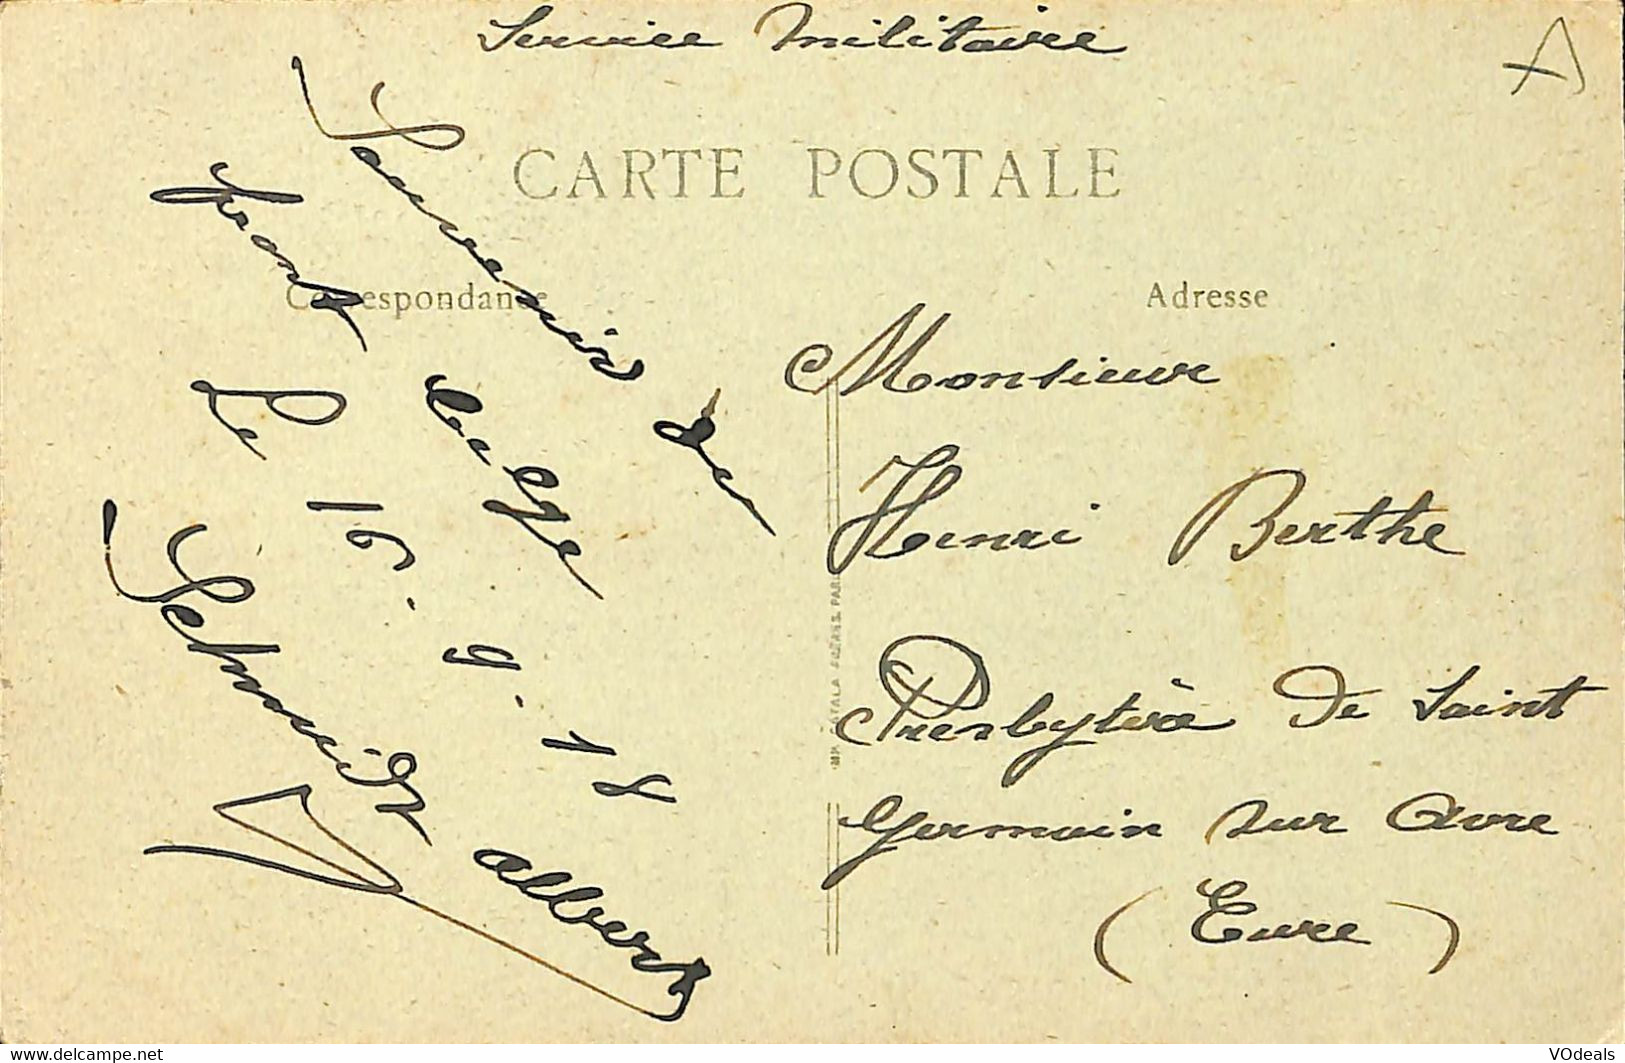 Service Militaire
A
CARTE POSTALE
Correspondance
Adresse
Souvenir du
front belge
Le 16.9.18
Schmidt Albert
Monsieur
Henri Berthe
Presbytère de Saint
Germain sur Avre
(Eure)
IMP. CATALA FRERES. PARIS
www.delcampe.net
VOdeals